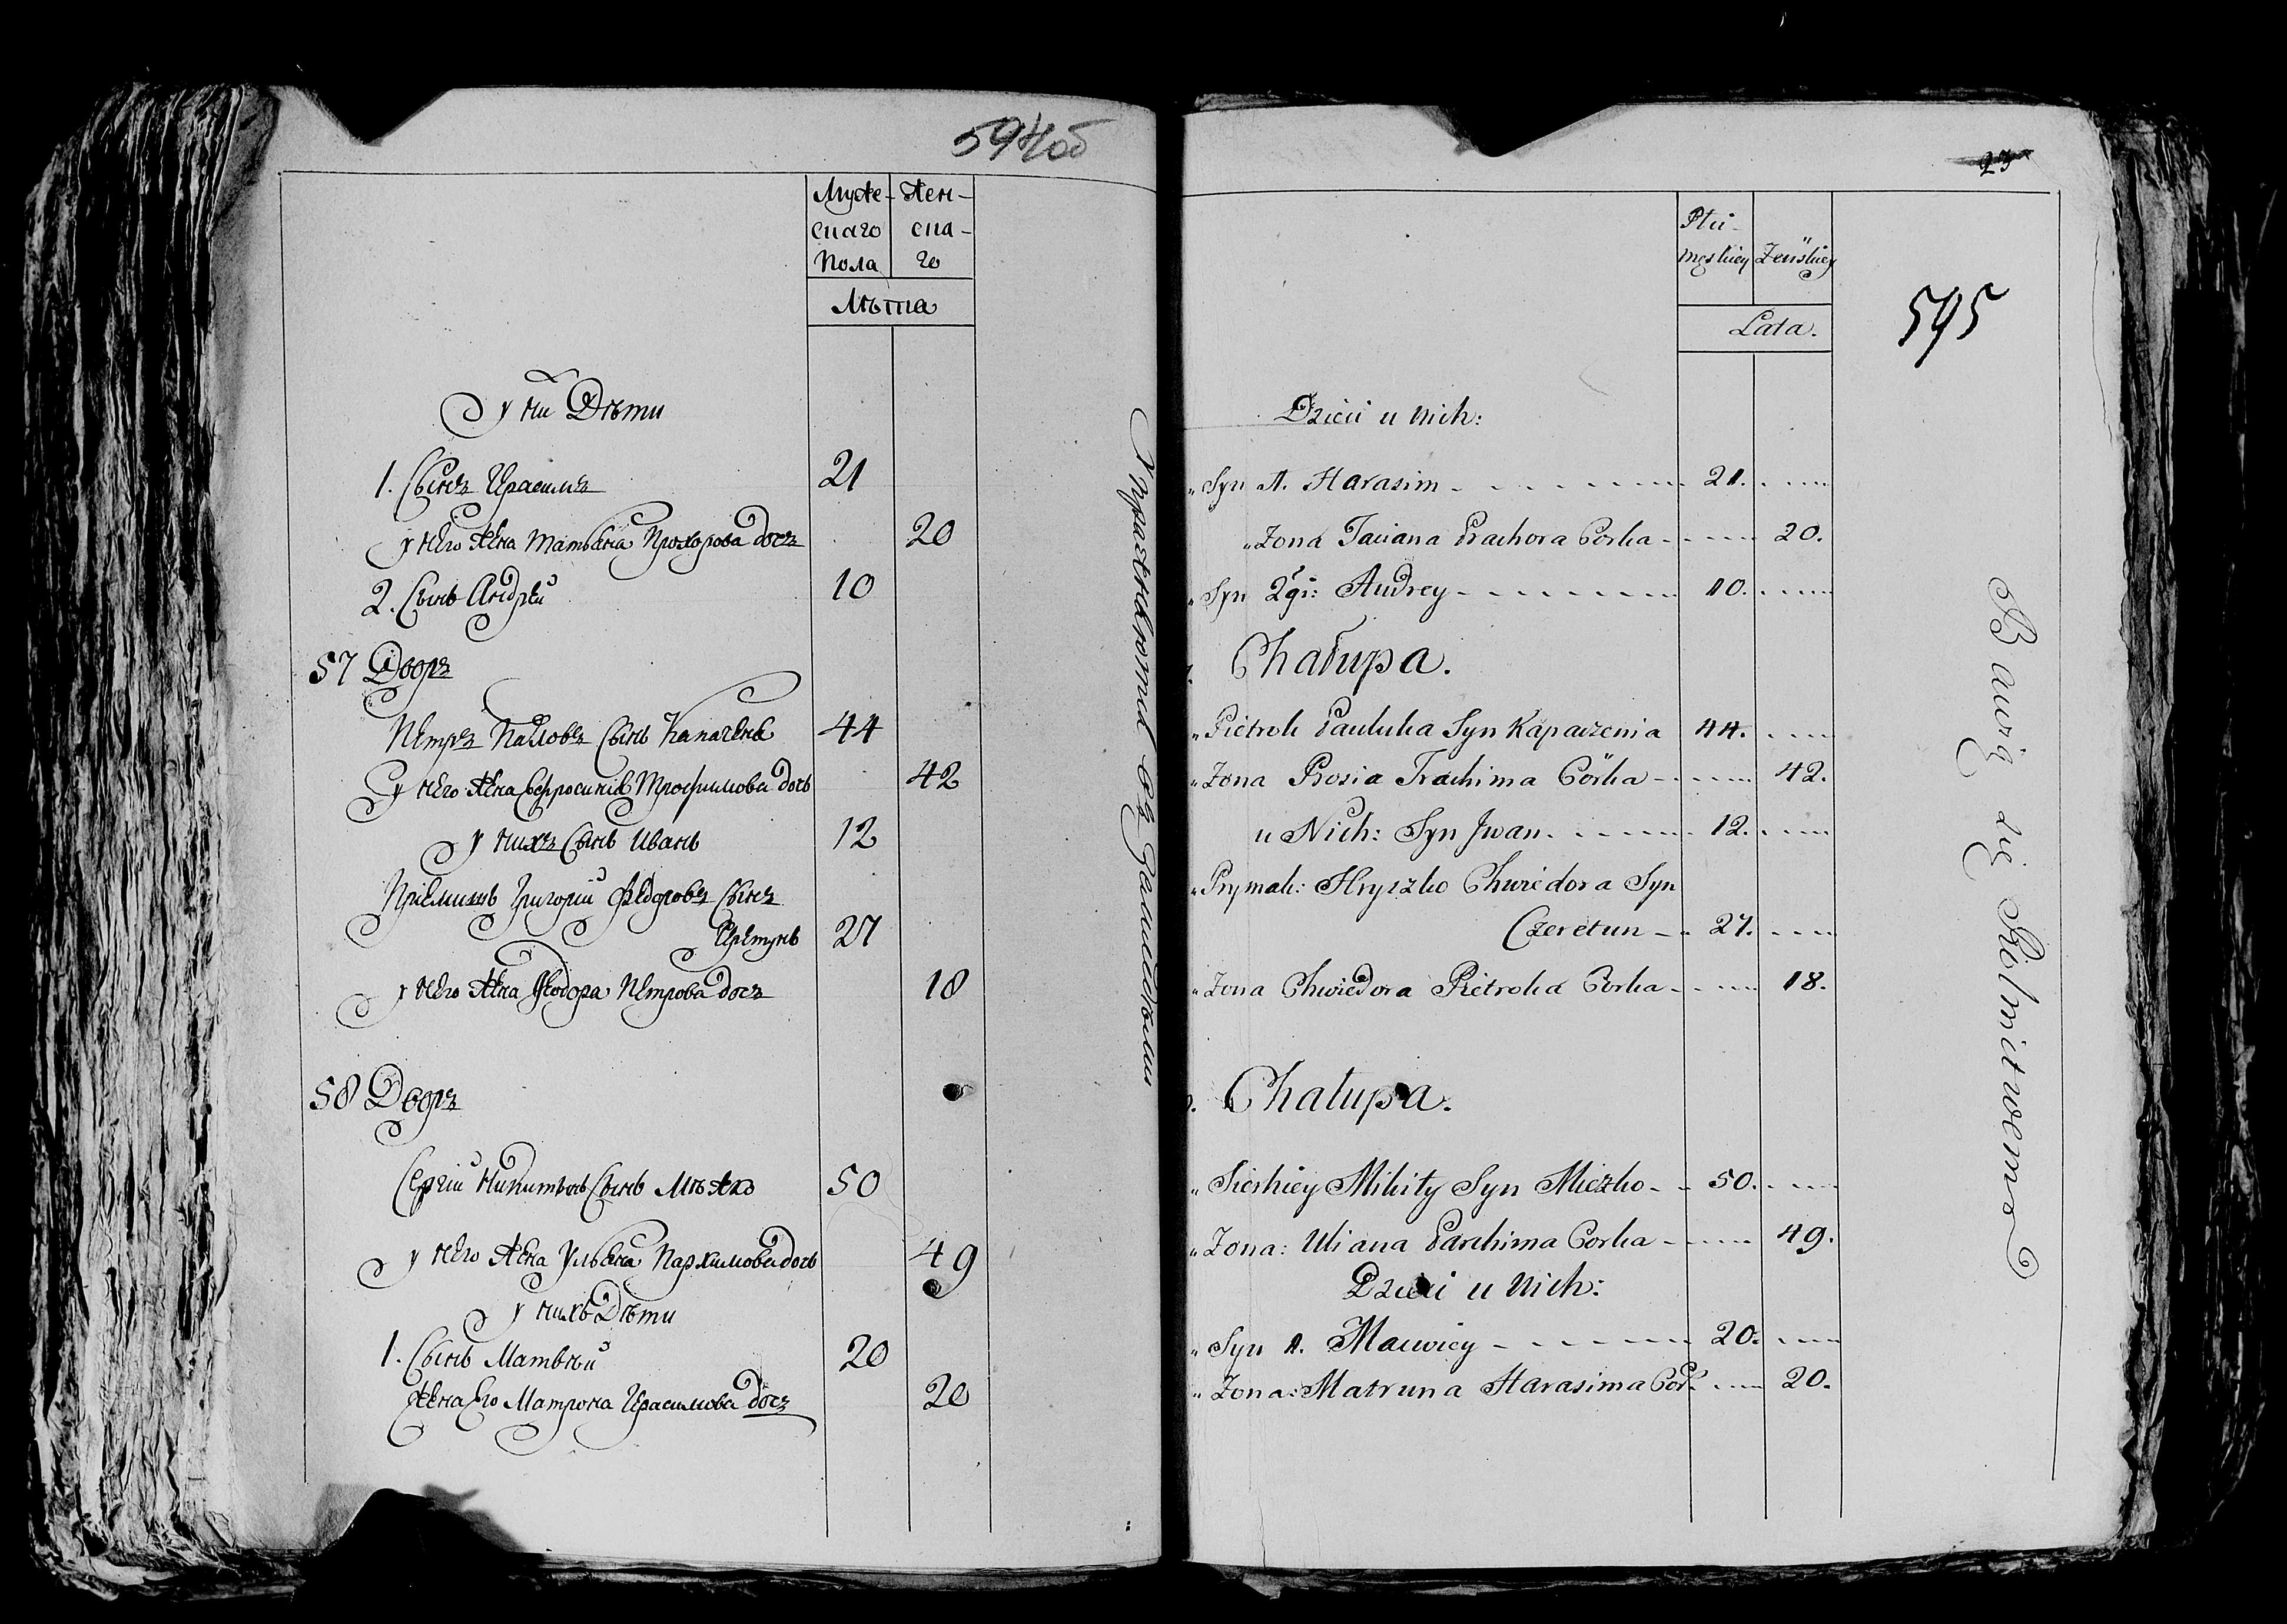 594 об
Муже- Жен-
скаго ска-
Пола го
Лѣта
У ни Дѣти
1. Сынъ Герасимъ 21
У него жена Татьяна Прохорова дочь 20
2. Сынъ Андрей 10
57 Дворъ
Петръ Павловъ Сынъ Капачень 44
У него жена Ефросинія Трофимова дочь 42
У нихъ Сынъ Иванъ 12
Пріемышъ Григорій Федоровъ Сынъ
Черетунъ 27
У него жена Феодора Петрова дочь 18
58 Дворъ
Сергій Никитинъ Сынъ Мѣжко 50
У него жена Ульяна Пархимова дочь 49
У нихъ Дѣти
1. Сынъ Матвѣй 20
Жена Его Матрона Герасимова дочь 20
Упражняются въ Земледѣліи
23
595
Płci
męskiey Żeńskiey
Lata.
Dzieci u nich:
„ Syn 1. Harasim 21.
„ Zona Taciana Prachora Corka 20.
„ Syn 2gi: Andrey 10.
Chałupa.
„ Pietrok Pauluka Syn Kapaczenia 44.
„ Zona Prosia Trachima Córka 42.
u Nich: Syn Jwan 12.
„ Prymak: Hryszko Chwiedora Syn
Czeretun 27.
„ Zona Chwiedora Pietroka Corka 18.
Chałupa.
„ Sierhiey Mikity Syn Mieżko 50.
„ Zona: Uliana Parchima Corka 49.
Dzieci u Nich:
„ Syn 1. Maćwiey 20.
„ Zona: Matruna Harasima Cor: 20.
Bawią się Rolnictwem